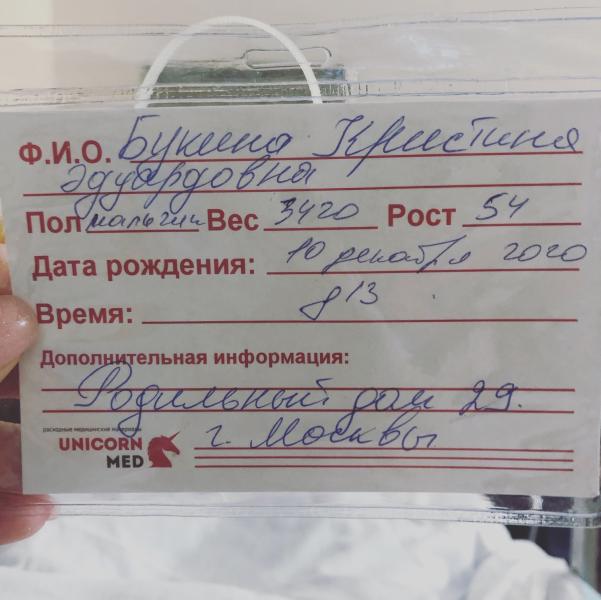 Ф.И.О. Букина Кристина
Эдуардовна
Пол мальчик Вес 3420 Рост 54
Дата рождения: 10 декабря 2020
Время: 813
Дополнительная информация:
Родильный дом 29.
г. Москвы
расходные медицинские материалы
UNICORN
MED